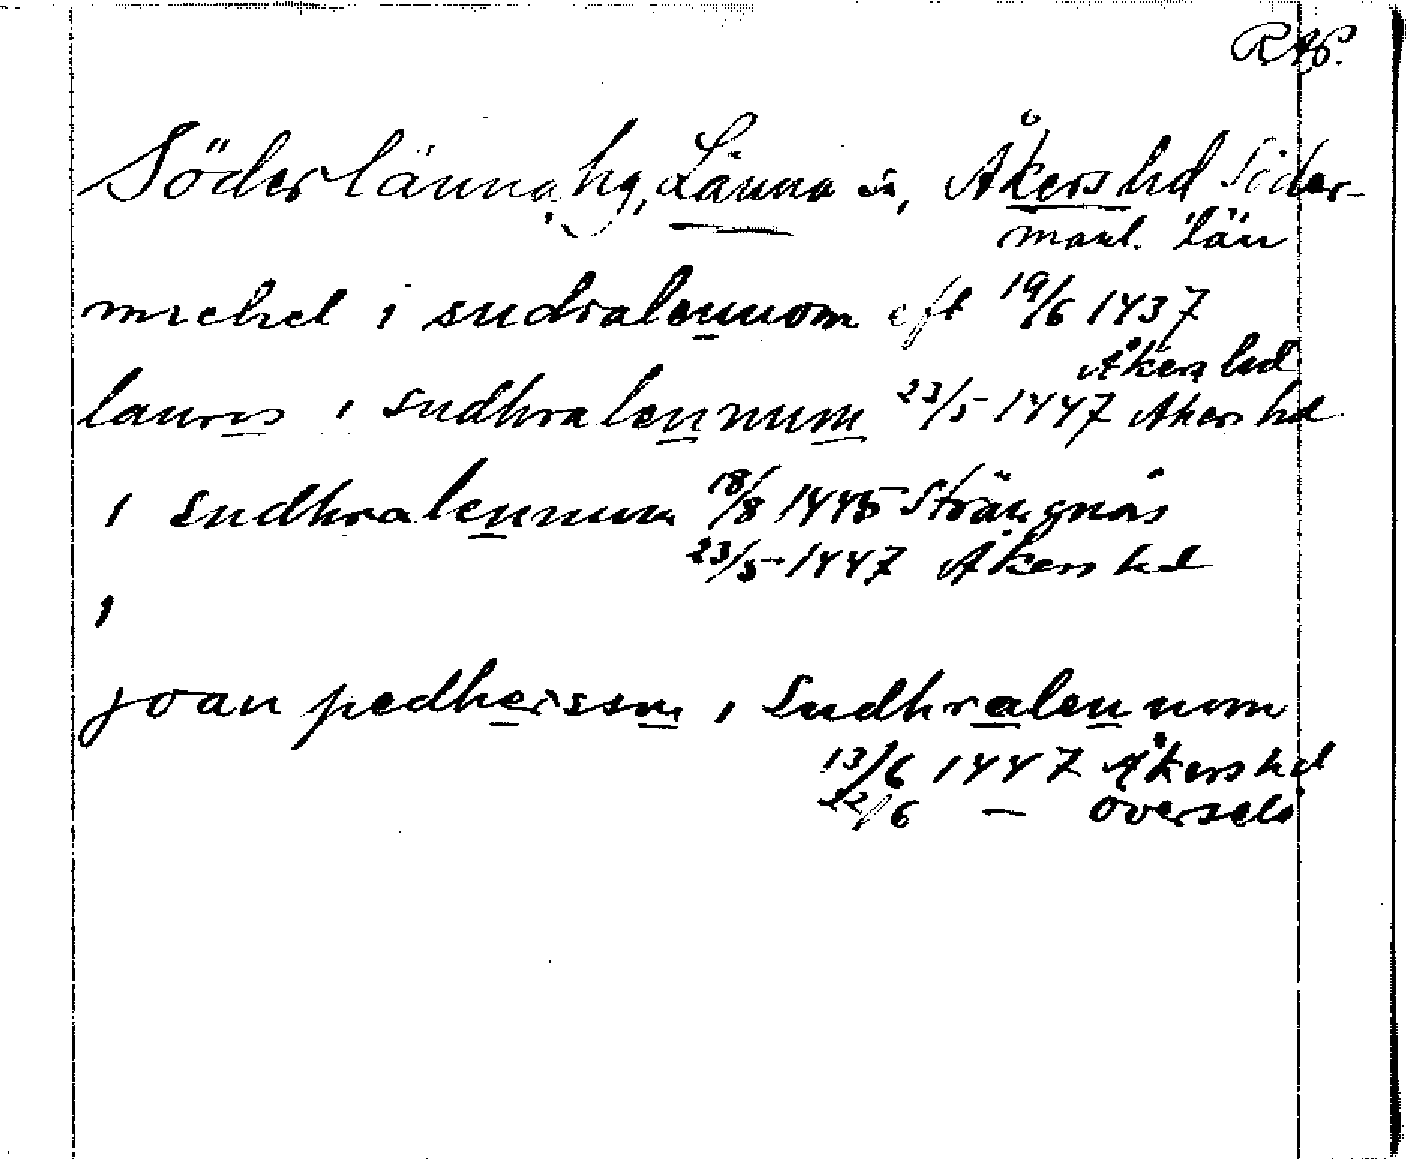 RAP.
Söderlänna, hg, Länna sn, Åkers hd Söder-
manl. län
michel i sudralennom eft 19/6 1437
Åkers hd
lauris i sudhralennum 23/5 1447 Åkers hd
i sudhralennum 18/8 1445 Strängnäs
23/5 1447 Åkers hd
i
joan pedhersson i sudhralennom
13/6 1447 Åkers hd
22/6 — Överselö